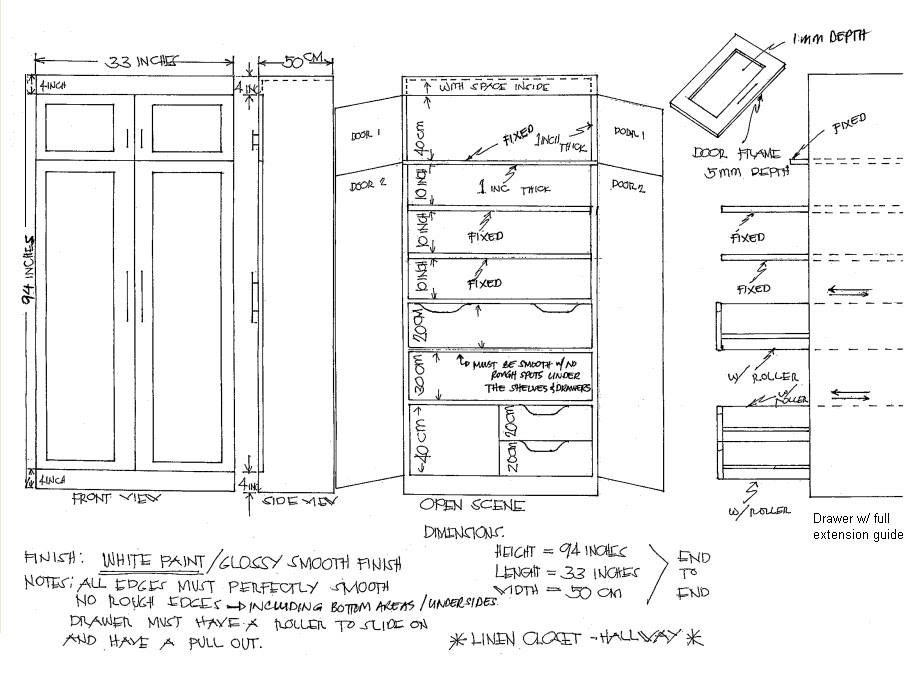 33 INCHES
4INCH
94 INCHES
4INCH
FRONT VIEW
50 CM
4 INC
4 INC
SIDE VIEW
DOOR 1
DOOR 2
WITH SPACE INSIDE
40cm
FIXED
1INCH THICK
10 INCH
1 INC THICK
10 INCH
FIXED
10 INCH
FIXED
20CM
30cm
MUST BE SMOOTH W/ NO
ROUGH SPOTS UNDER
THE SHELVES & DRAWERS
40cm
20cm
20cm
OPEN SCENE
DOOR 1
DOOR 2
1mm DEPTH
DOOR FRAME
5mm DEPTH
FIXED
FIXED
FIXED
W/ ROLLER
W/ ROLLER
W/ ROLLER
Drawer w/ full
extension guide
DIMENSIONS:
HEIGHT = 94 INCHES
LENGHT = 33 INCHES
WIDTH = 50 CM
END
TO
END
FINISH: WHITE PAINT/GLOSSY SMOOTH FINISH
NOTES: ALL EDGES MUST PERFECTLY SMOOTH
NO ROUGH EDGES → INCLUDING BOTTOM AREAS/UNDERSIDES
DRAWER MUST HAVE A ROLLER TO SLIDE ON
AND HAVE A PULL OUT.
* LINEN CLOSET - HALLWAY *